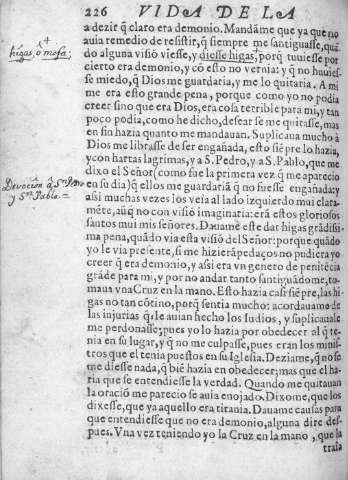 226 VIDA DE LA
a dezir q̃ claro era demonio. Mandàme que ya que no
auia remedio de resistir, q̃ siempre me santiguasse, quã
do alguna visiõ viesse, y diesse higas, porq̃ tuuiesse por
cierto era demonio, y cõ esto no vernia: y q̃ no huuies-
se miedo, q̃ Dios me guardaria, y me lo quitaria. A mi
me era esto grande pena, porque como yo no podia
creer sino que era Dios, era cosa terrible para mi, y tan
poco podia, como he dicho, desear se me quitasse, mas
en fin hazia quanto me mandauan. Suplicaua mucho à
Dios me librasse de ser engañada, esto siẽpre lo hazia,
y con hartas lagrimas, y a S. Pedro, y a S. Pablo, que me
dixo el Señor (como fue la primera vez q̃ me aparecio
en su dia) q̃ ellos me guardariã q̃ no fuesse engañada: y
assi muchas vezes los veia al lado izquierdo mui clara-
mẽte, aũq̃ no con visiõ imaginaria: erã estos gloriosos
santos mui mis señores. Dauame este dar higas grãdissi-
ma pena, quãdo via esta visiõ del Señor: porque quãdo
yo le via presente, si me hizierã pedaços no pudiera yo
creer q̃ era demonio, y assi era vn genero de penitẽcia
grãde para mi, y por no andar tanto santiguãdome, to-
maua vna Cruz en la mano. Esto hazia casi siẽpre, las hi-
gas no tan cõtino, porq̃ sentia mucho: acordauame de
las injurias q̃ le auian hecho los Iudios, y suplicauale
me perdonasse; pues yo lo hazia por obedecer al q̃ te-
nia en su lugar, y q̃ no me culpasse, pues eran los minis-
tros que el tenia puestos en su Iglesia. Deziame, q̃ no se
me diesse nada, q̃ biẽ hazia en obedecer; mas que el ha-
ria que se entendiesse la verdad. Quando me quitauan
la oraciõ me parecio se auia enojado. Dixome, que los
dixesse, que ya aquello era tirania. Dauame causas para
que entendiesse que no era demonio, alguna dire des-
pues. Vna vez teniendo yo la Cruz en la mano, que la
traia
higas, ô mofa.
Devocion â Sn. Pedro
y Sn. Pablo =